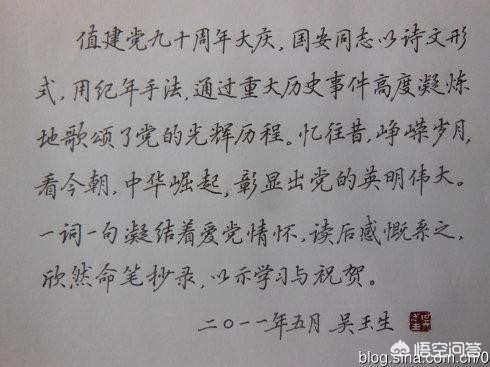 值建党九十周年大庆，国安同志以诗文形
式，用纪年手法，通过重大历史事件高度凝炼
地歌颂了党的光辉历程。忆往昔，峥嵘岁月，
看今朝，中华崛起，彰显出党的英明伟大。
一词一句凝结着爱党情怀，读后感慨系之，
欣然命笔抄录，以示学习与祝贺。
二〇一一年五月 吴玉生
悟空问答
blog.sina.com.cn/0